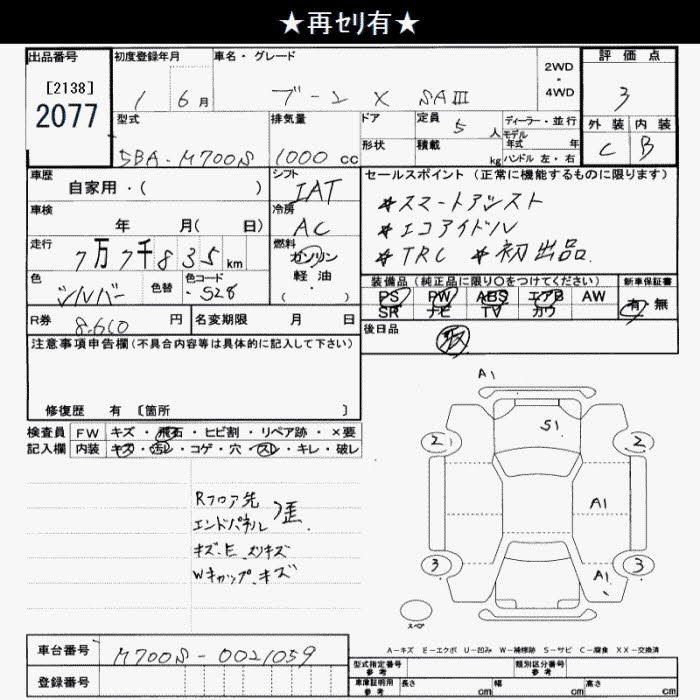 ★再ｾﾘ有★
出品番号 初度登録年月 車名・グレード 評価点
[2138]
2077
1 6月 ブーン X SAⅢ 2WD・4WD 3
型式 排気量 ドア 定員 5人 ディーラー・並行 外装 内装
モデル年式 年
5BA-M700S 1000cc 形状 積載 kg ハンドル 左・右 C B
車歴 シフト セールスポイント (正常に機能するものに限ります)
自家用・( ) IAT *スマートアシスト
車検 冷房 *エコアイドル
年 月( 日) AC *TRC *初出品.
走行 燃料
7万7千835km ガソリン
軽油・( )
色 色替 色コード 装備品 (純正品に限り○をつけてください) 新車保証書
シルバー S28 PS PW ABS エアB AW 有・無
SR ナビ TV カワ
R券 8,610円 名変期限 月 日 後日品
取
注意事項申告欄(不具合内容等は具体的に記入して下さい)
修復歴 有 [箇所 ]
検査員 FW キズ・飛石・ヒビ割・リペア跡・×要
記入欄 内装 キズ・汚レ・コゲ・穴・スレ・キレ・破レ
A1
S1
2 2
A1
3 3
A1
Rフロア先
エンドパネル 歪.
キズ.E.スリキズ
Wキャップ.キズ
スペア
A－キズ E－エクボ U－凹み W－補修跡 S－サビ C－腐食 XX－交換済
車台番号 M700S-0021059
登録番号
型式指定番号 参考 類別区分番号 参考
車庫証明用 参考 長さ cm 幅 cm 高さ cm